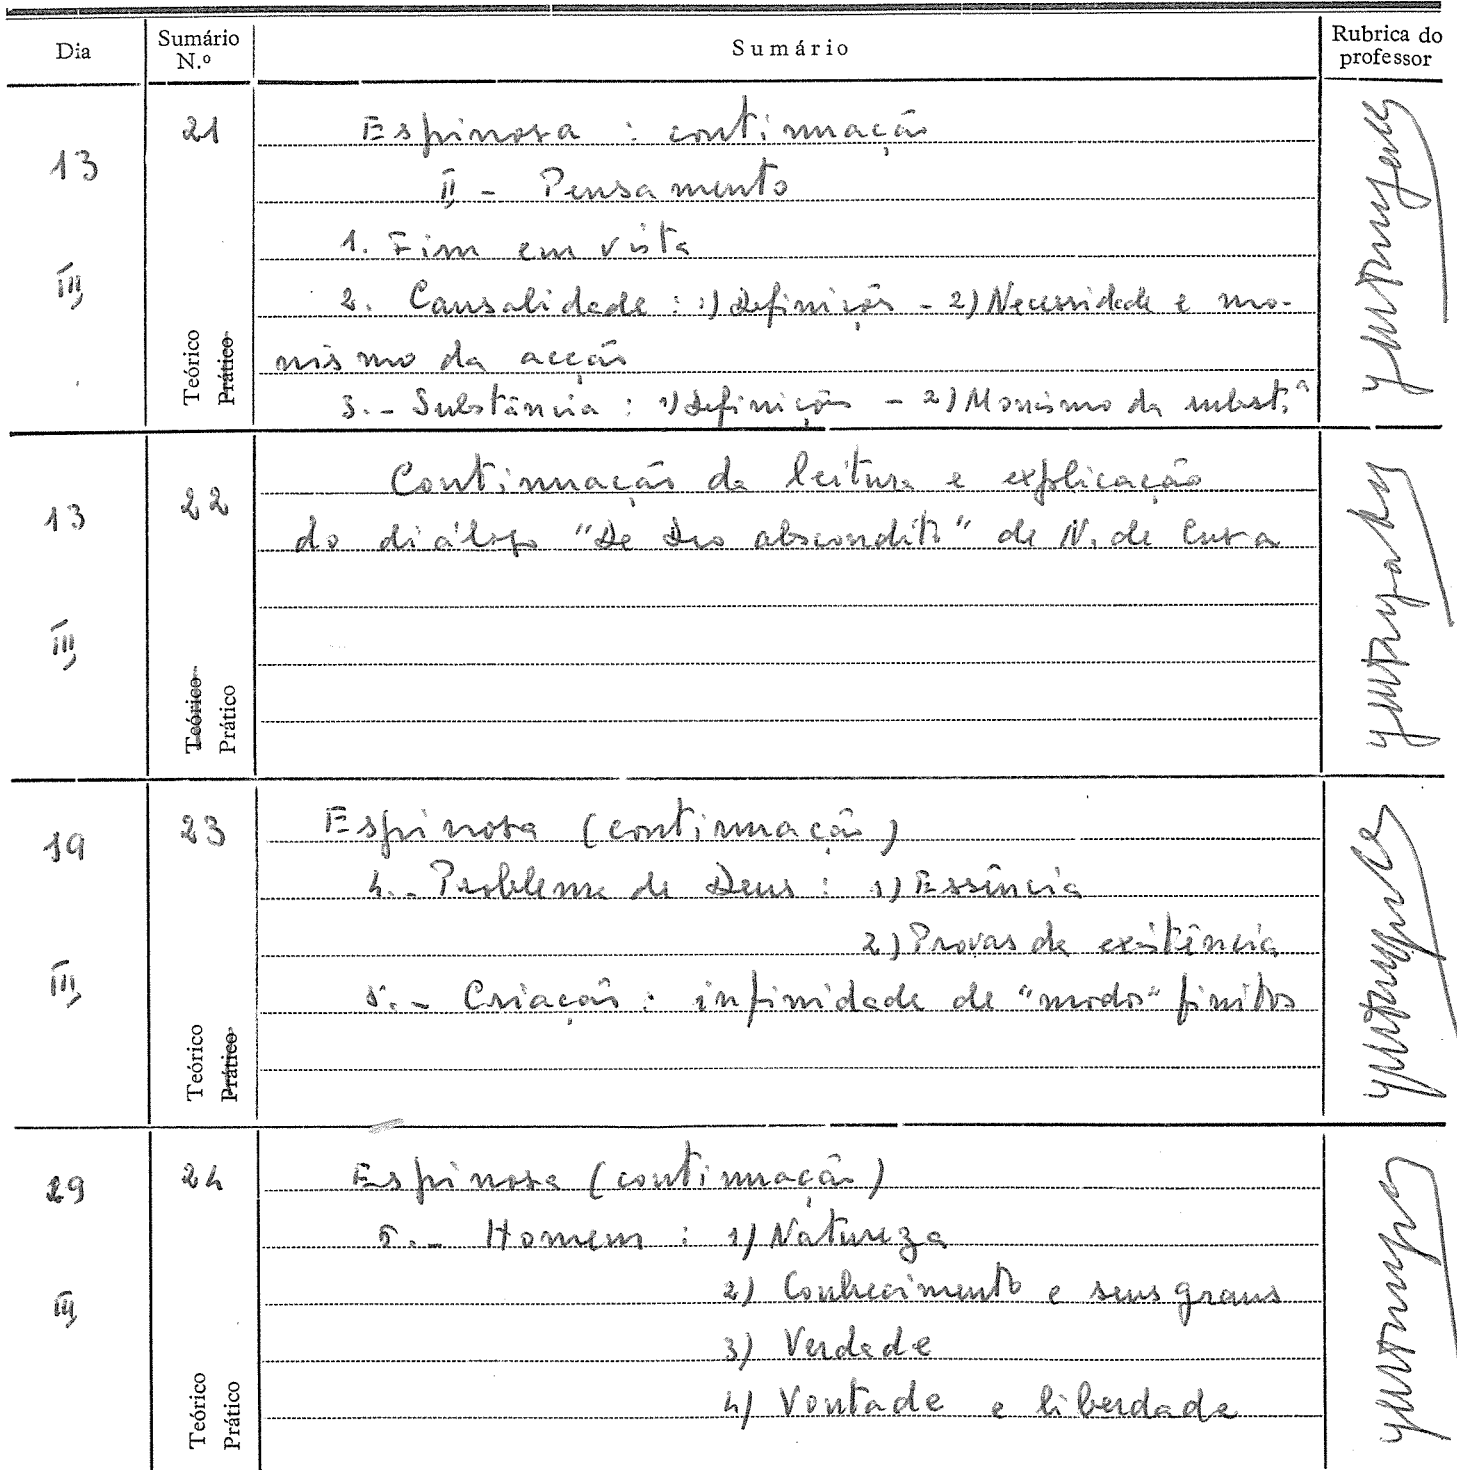 Dia
Sumário N.º
Sumário
Rubrica do professor
13
III
21
Teórico
Prático
Espinosa : continuação
II - Pensamento
1. Fim em vista
2. Causalidade : 1) Definição - 2) Necessidade e mo-
nismo da acção
3. - Substância : 1) Definição - 2) Monismo da subst.ª
13
III
22
Teórico
Prático
Continuação da leitura e explicação
do diálogo "De Deo abscondito" de N. de Cusa
19
III
23
Teórico
Prático
Espinosa (continuação)
4. - Problema de Deus : 1) Essência
2) Provas da existência
5. - Criação : infinidade de "modos" finitos
29
III
24
Teórico
Prático
Espinosa (continuação)
5. - Homem : 1) Natureza
2) Conhecimento e seus graus
3) Verdade
4) Vontade e liberdade